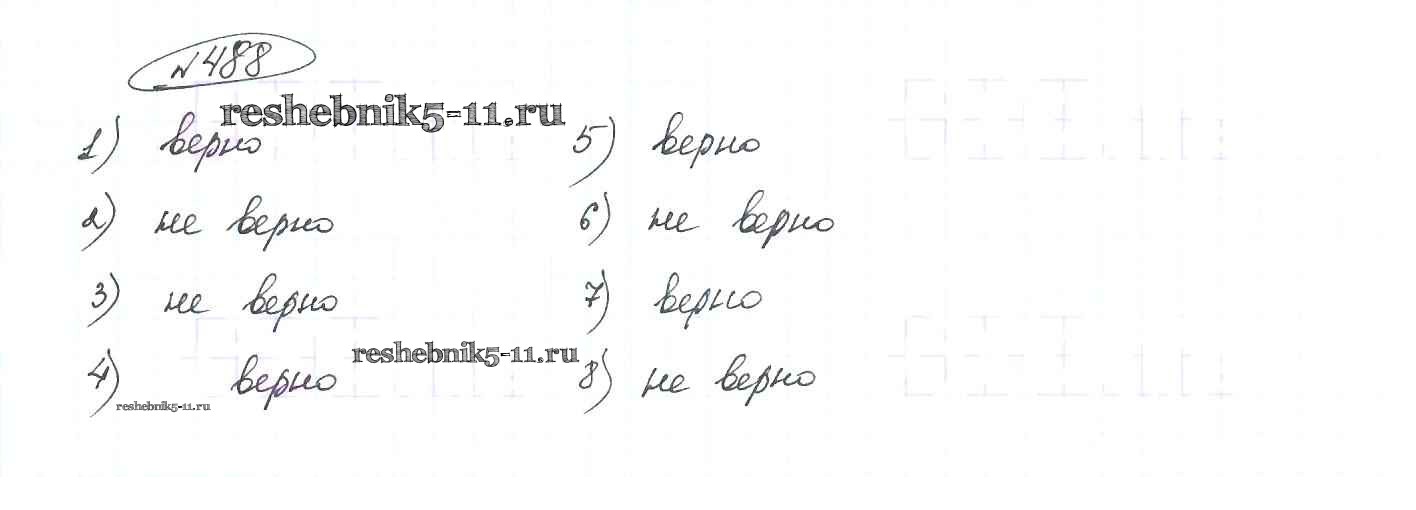 №488
reshebnik5-11.ru
1) верно
2) не верно
3) не верно
4) верно
reshebnik5-11.ru
reshebnik5-11.ru
5) верно
6) не верно
7) верно
8) не верно